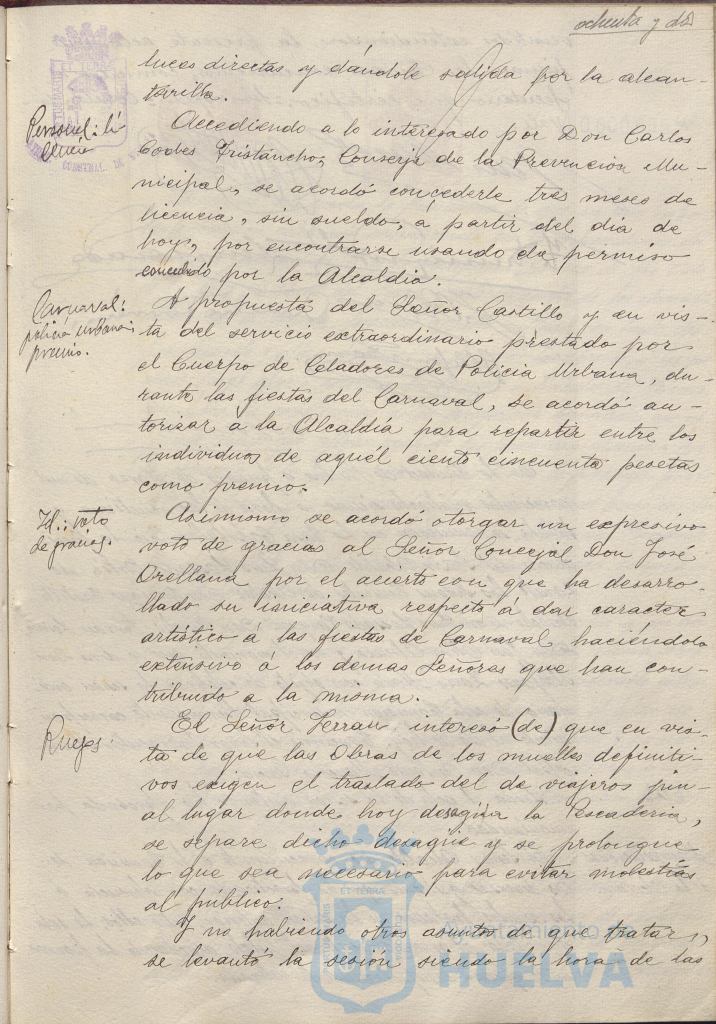 ochenta y dos
luces directas y dándole salida por la alcan-
tarilla.
Personal: li
cencia
Accediendo a lo interesado por Don Carlos
Codes Tristancho, Conserje de la Prevención Mu-
nicipal, se acordó concederle tres meses de
licencia, sin sueldo, á partir del día de
hoy, por encontrarse usando de permiso
concedido por la Alcaldía.
Carnaval:
policia urbana:
premio.
A propuesta del Señor Castillo y en vis-
ta del servicio extraordinario prestado por
el Cuerpo de Celadores de Policia Urbana, du-
rante las fiestas del Carnaval, se acordó au-
torizar a la Alcaldía para repartir entre los
individuos de aquél ciento cincuenta pesetas
como premio.
Id.: voto
de gracias.
Asimismo se acordó otorgar un expresivo
voto de gracias al Señor Concejal Don José
Orellana por el acierto con que ha desarro-
llado su iniciativa respecto á dar caracter
artístico á las fiestas de Carnaval haciéndolo
extensivo á los demas Señores que han con-
tribuido a la misma.
Ruegos.
El Señor Terrau interesó (de) que en vis-
ta de que las Obras de los muelles definiti-
vos exigen el traslado del de viajeros jun-
al lugar donde hoy desagüa la Pescaderia,
se separe dicho desagüe y se prolongue
lo que sea necesario para evitar molestias
al público.
Y no habiendo otros asuntos de que tratar,
se levantó la sesión siendo la hora de las
Ayuntamiento de
HUELVA